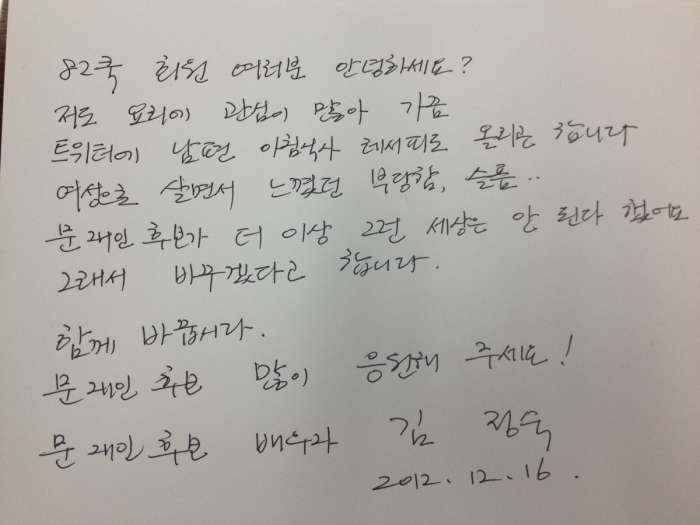 82쿡 회원 여러분 안녕하세요?
저도 요리에 관심이 많아 가끔
트위터에 남편 아침식사 레서피도 올리곤 합니다
여성으로 살면서 느꼈던 부당함, 슬픔..
문재인 후보가 더 이상 그런 세상은 안 된다 했어요
그래서 바꾸겠다고 합니다.
함께 바꿉시다.
문재인 후보 많이 응원해 주세요!
문재인 후보 배우자 김 정숙
2012. 12. 16.